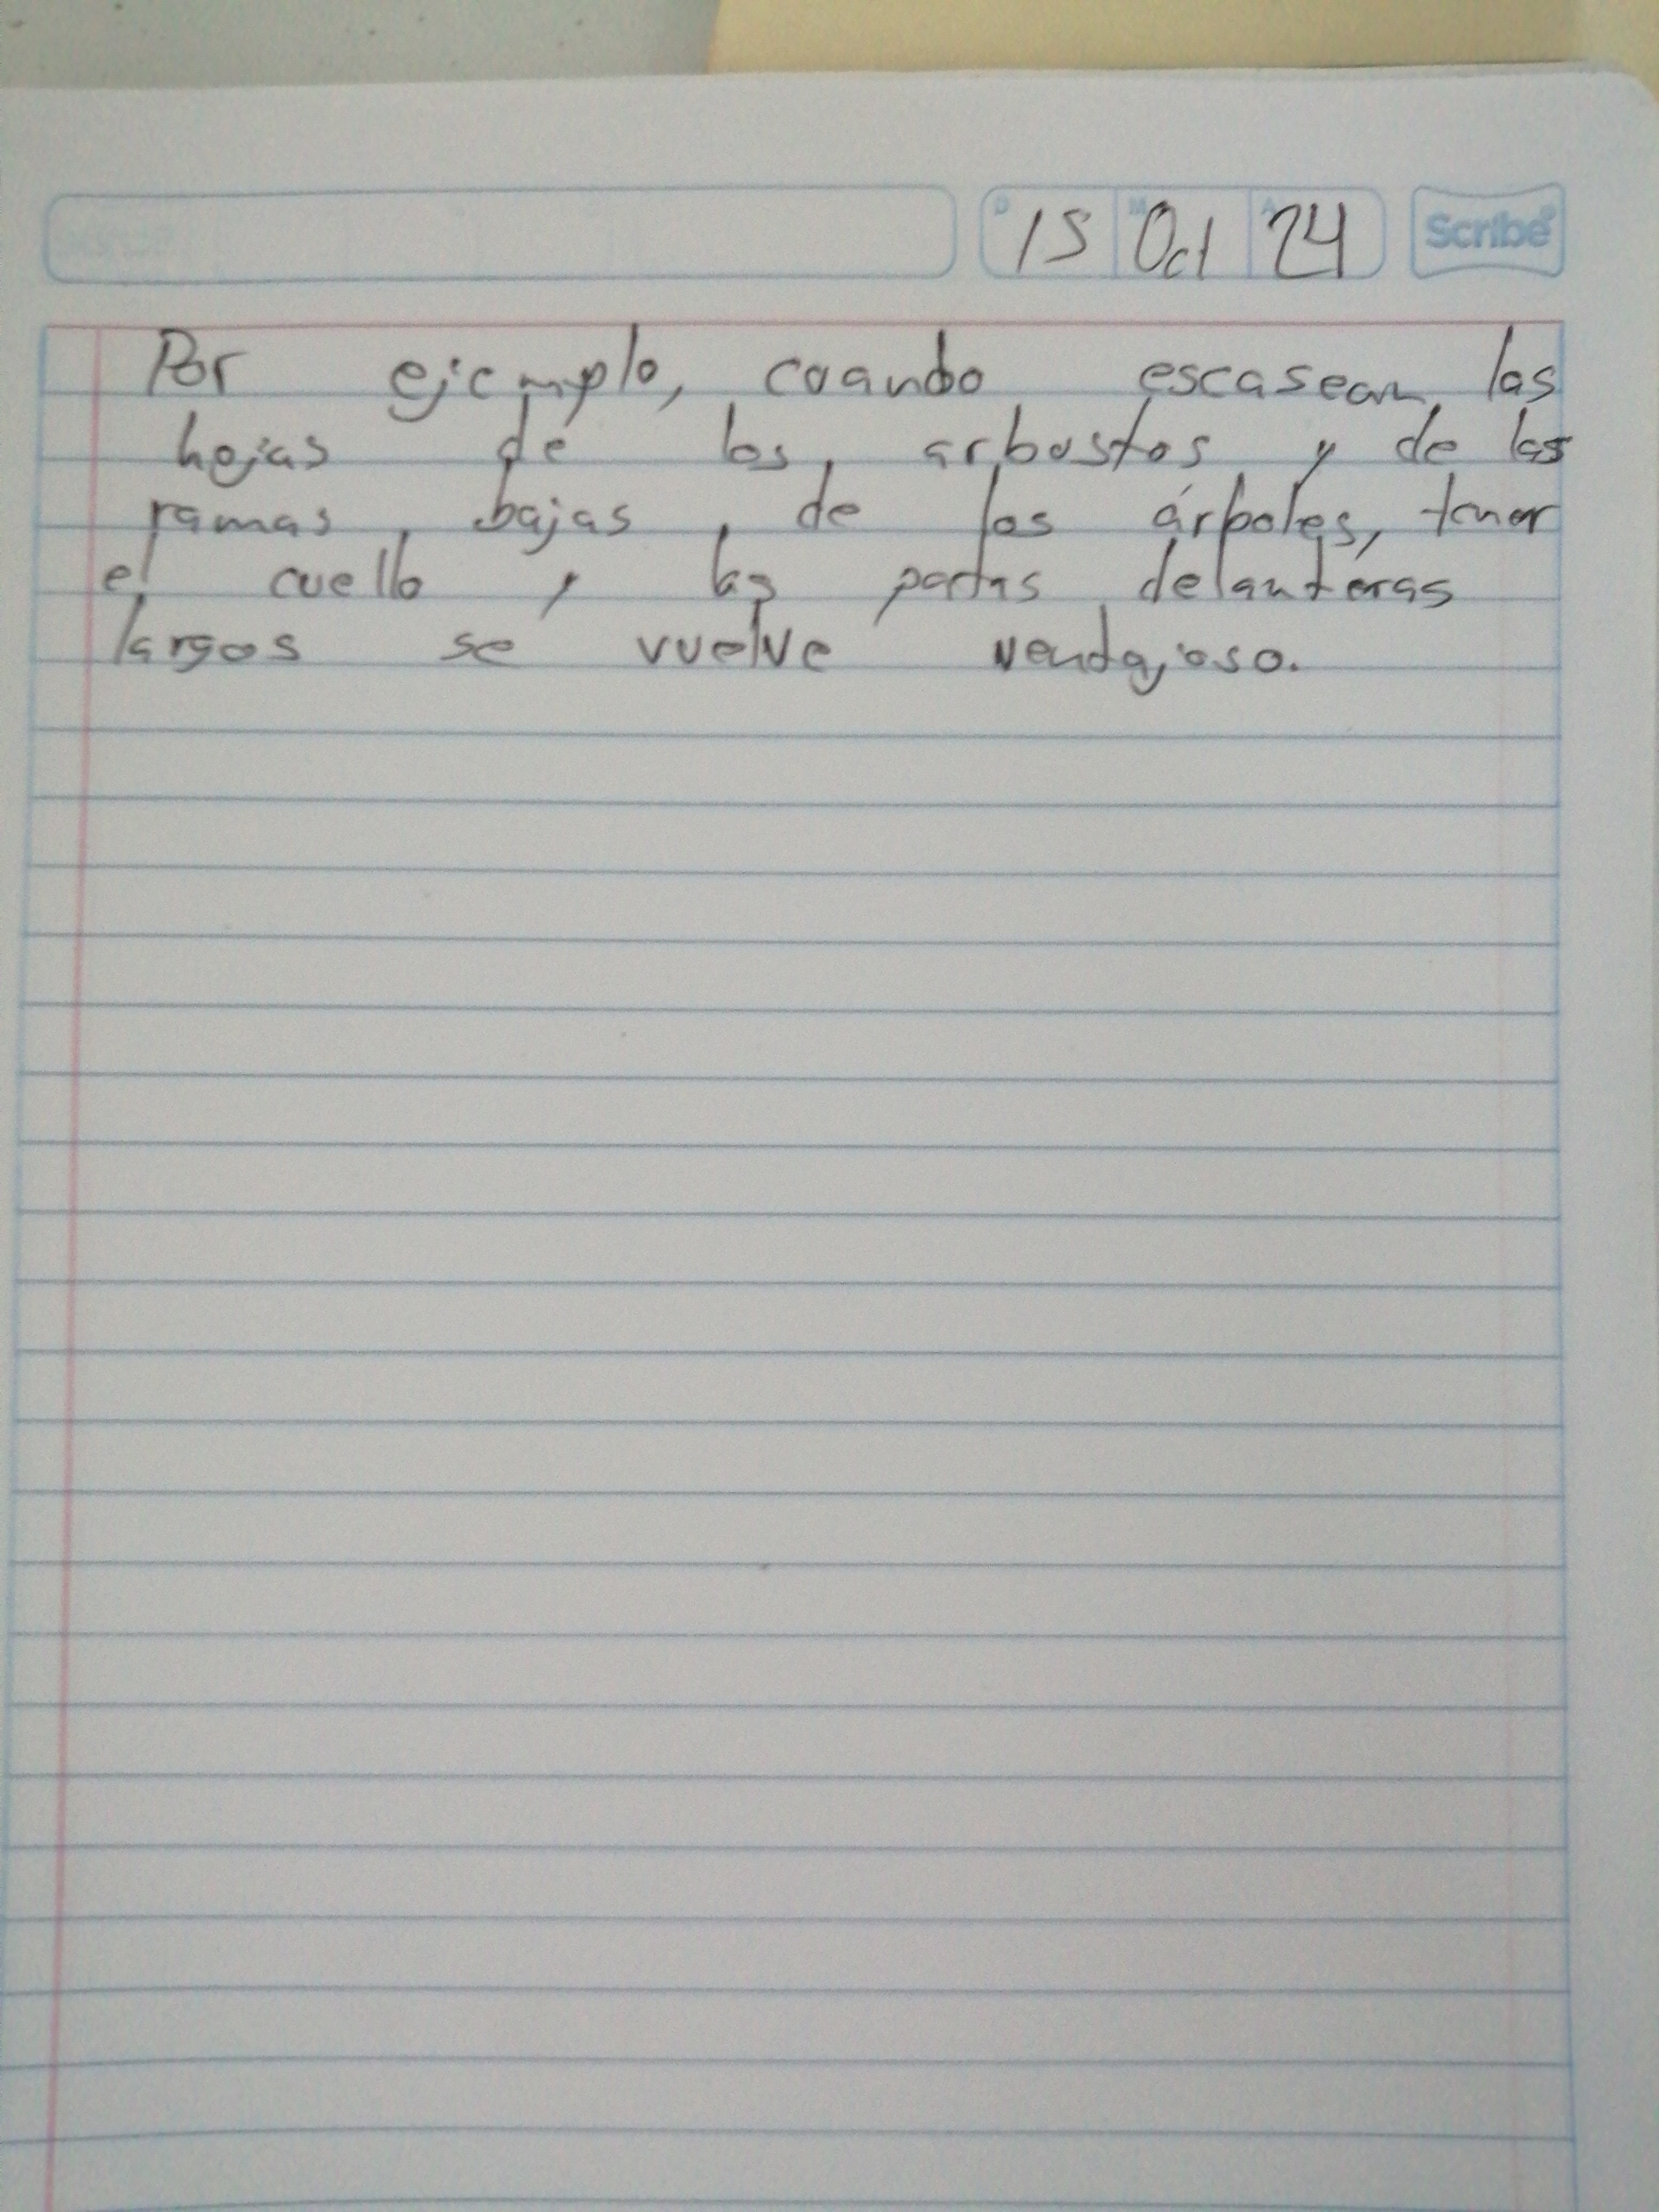 15 Oct 24 Scribe
Por ejemplo, cuando escasean las
hojas de los arbustos y de las
ramas bajas de los árboles, tener
el cuello y las patas delanteras
largos se vuelve ventajoso.